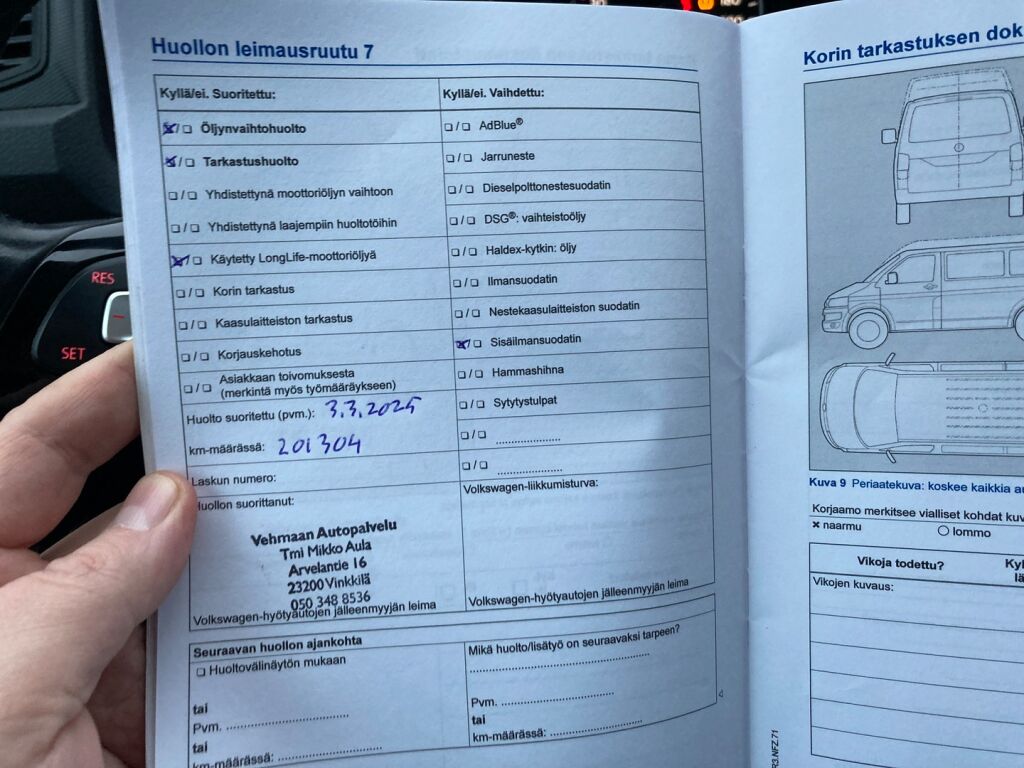 Huollon leimausruutu 7
Kyllä/ei. Suoritettu:
☒/☐ Öljynvaihtohuolto
☒/☐ Tarkastushuolto
☐/☐ Yhdistettynä moottoriöljyn vaihtoon
☐/☐ Yhdistettynä laajempiin huoltotöihin
☒/☐ Käytetty LongLife-moottoriöljyä
☐/☐ Korin tarkastus
☐/☐ Kaasulaitteiston tarkastus
☐/☐ Korjauskehotus
☐/☐ Asiakkaan toivomuksesta
(merkintä myös työmääräykseen)
Huolto suoritettu (pvm.): 3.3.2025
km-määrässä: 201304
Laskun numero:
Huollon suorittanut:
Vehmaan Autopalvelu
Tmi Mikko Aula
Arvelantie 16
23200 Vinkkilä
050 348 8536
Volkswagen-hyötyautojen jälleenmyyjän leima
Kyllä/ei. Vaihdettu:
☐/☐ AdBlue®
☐/☐ Jarruneste
☐/☐ Dieselpolttonestesuodatin
☐/☐ DSG®: vaihteistoöljy
☐/☐ Haldex-kytkin: öljy
☐/☐ Ilmansuodatin
☐/☐ Nestekaasulaitteiston suodatin
☒/☐ Sisäilmansuodatin
☐/☐ Hammashihna
☐/☐ Sytytystulpat
☐/☐ ....................
☐/☐ ....................
Volkswagen-liikkumisturva:
Volkswagen-hyötyautojen jälleenmyyjän leima
Seuraavan huollon ajankohta
☐ Huoltovälinäytön mukaan
tai
Pvm. ....................
tai
km-määrässä: ....................
Mikä huolto/lisätyö on seuraavaksi tarpeen?
....................
Pvm. ....................
tai
km-määrässä: ....................
Korin tarkastuksen dok
Kuva 9 Periaatekuva: koskee kaikkia
Korjaamo merkitsee vialliset kohdat
× naarmu ○ lommo
Vikoja todettu?
Vikojen kuvaus:
R3.NFZ.71
RES
SET